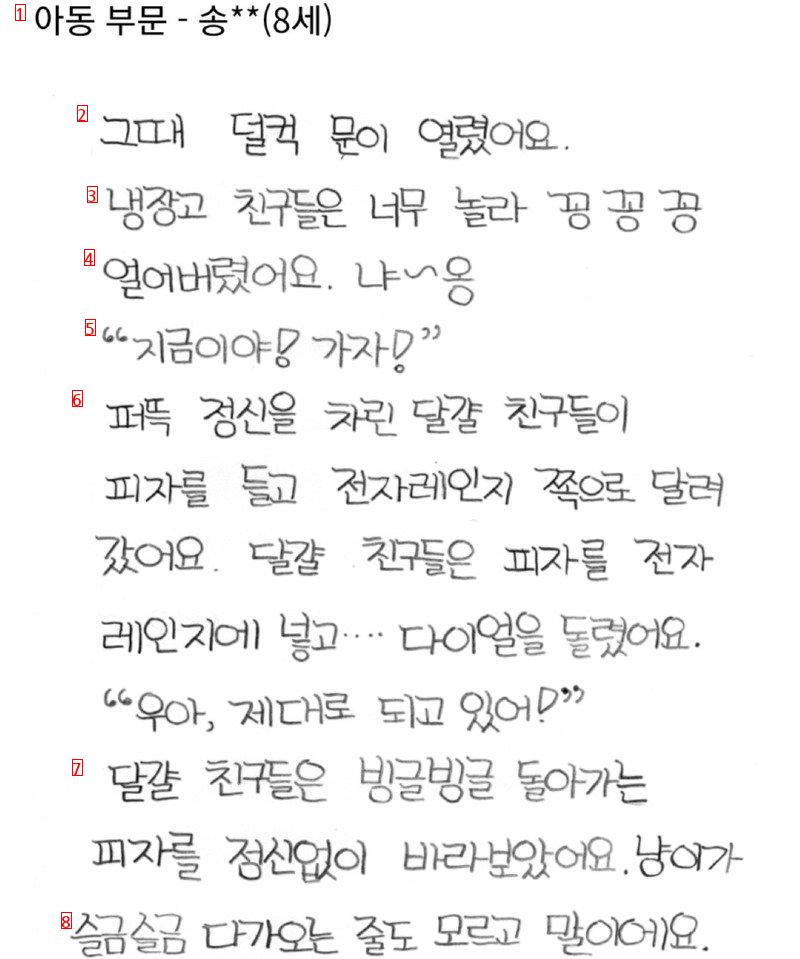 1 아동 부문 - 송**(8세)
2 그때 덜컥 문이 열렸어요.
3 냉장고 친구들은 너무 놀라 꽁 꽁 꽁
4 얼어버렸어요. 냐~옹
5 “지금이야! 가자!”
6 퍼뜩 정신을 차린 달걀 친구들이
피자를 들고 전자레인지 쪽으로 달려
갔어요. 달걀 친구들은 피자를 전자
레인지에 넣고···· 다이얼을 돌렸어요.
“우아, 제대로 되고 있어!”
7 달걀 친구들은 빙글빙글 돌아가는
피자를 정신없이 바라보았어요. 냥이가
8 슬금슬금 다가오는 줄도 모르고 말이에요.